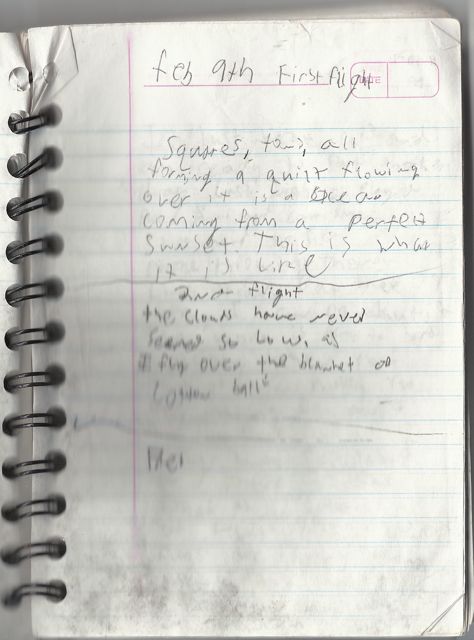 Feb 9th First flight
DATE
Squares, tans, all
forming a quilt flowing
over it is a
coming from a perfect
sunset This is what
it is like
2nd flight
the clouds have never
seemed so low, as
I fly over the blanket of
cotton balls